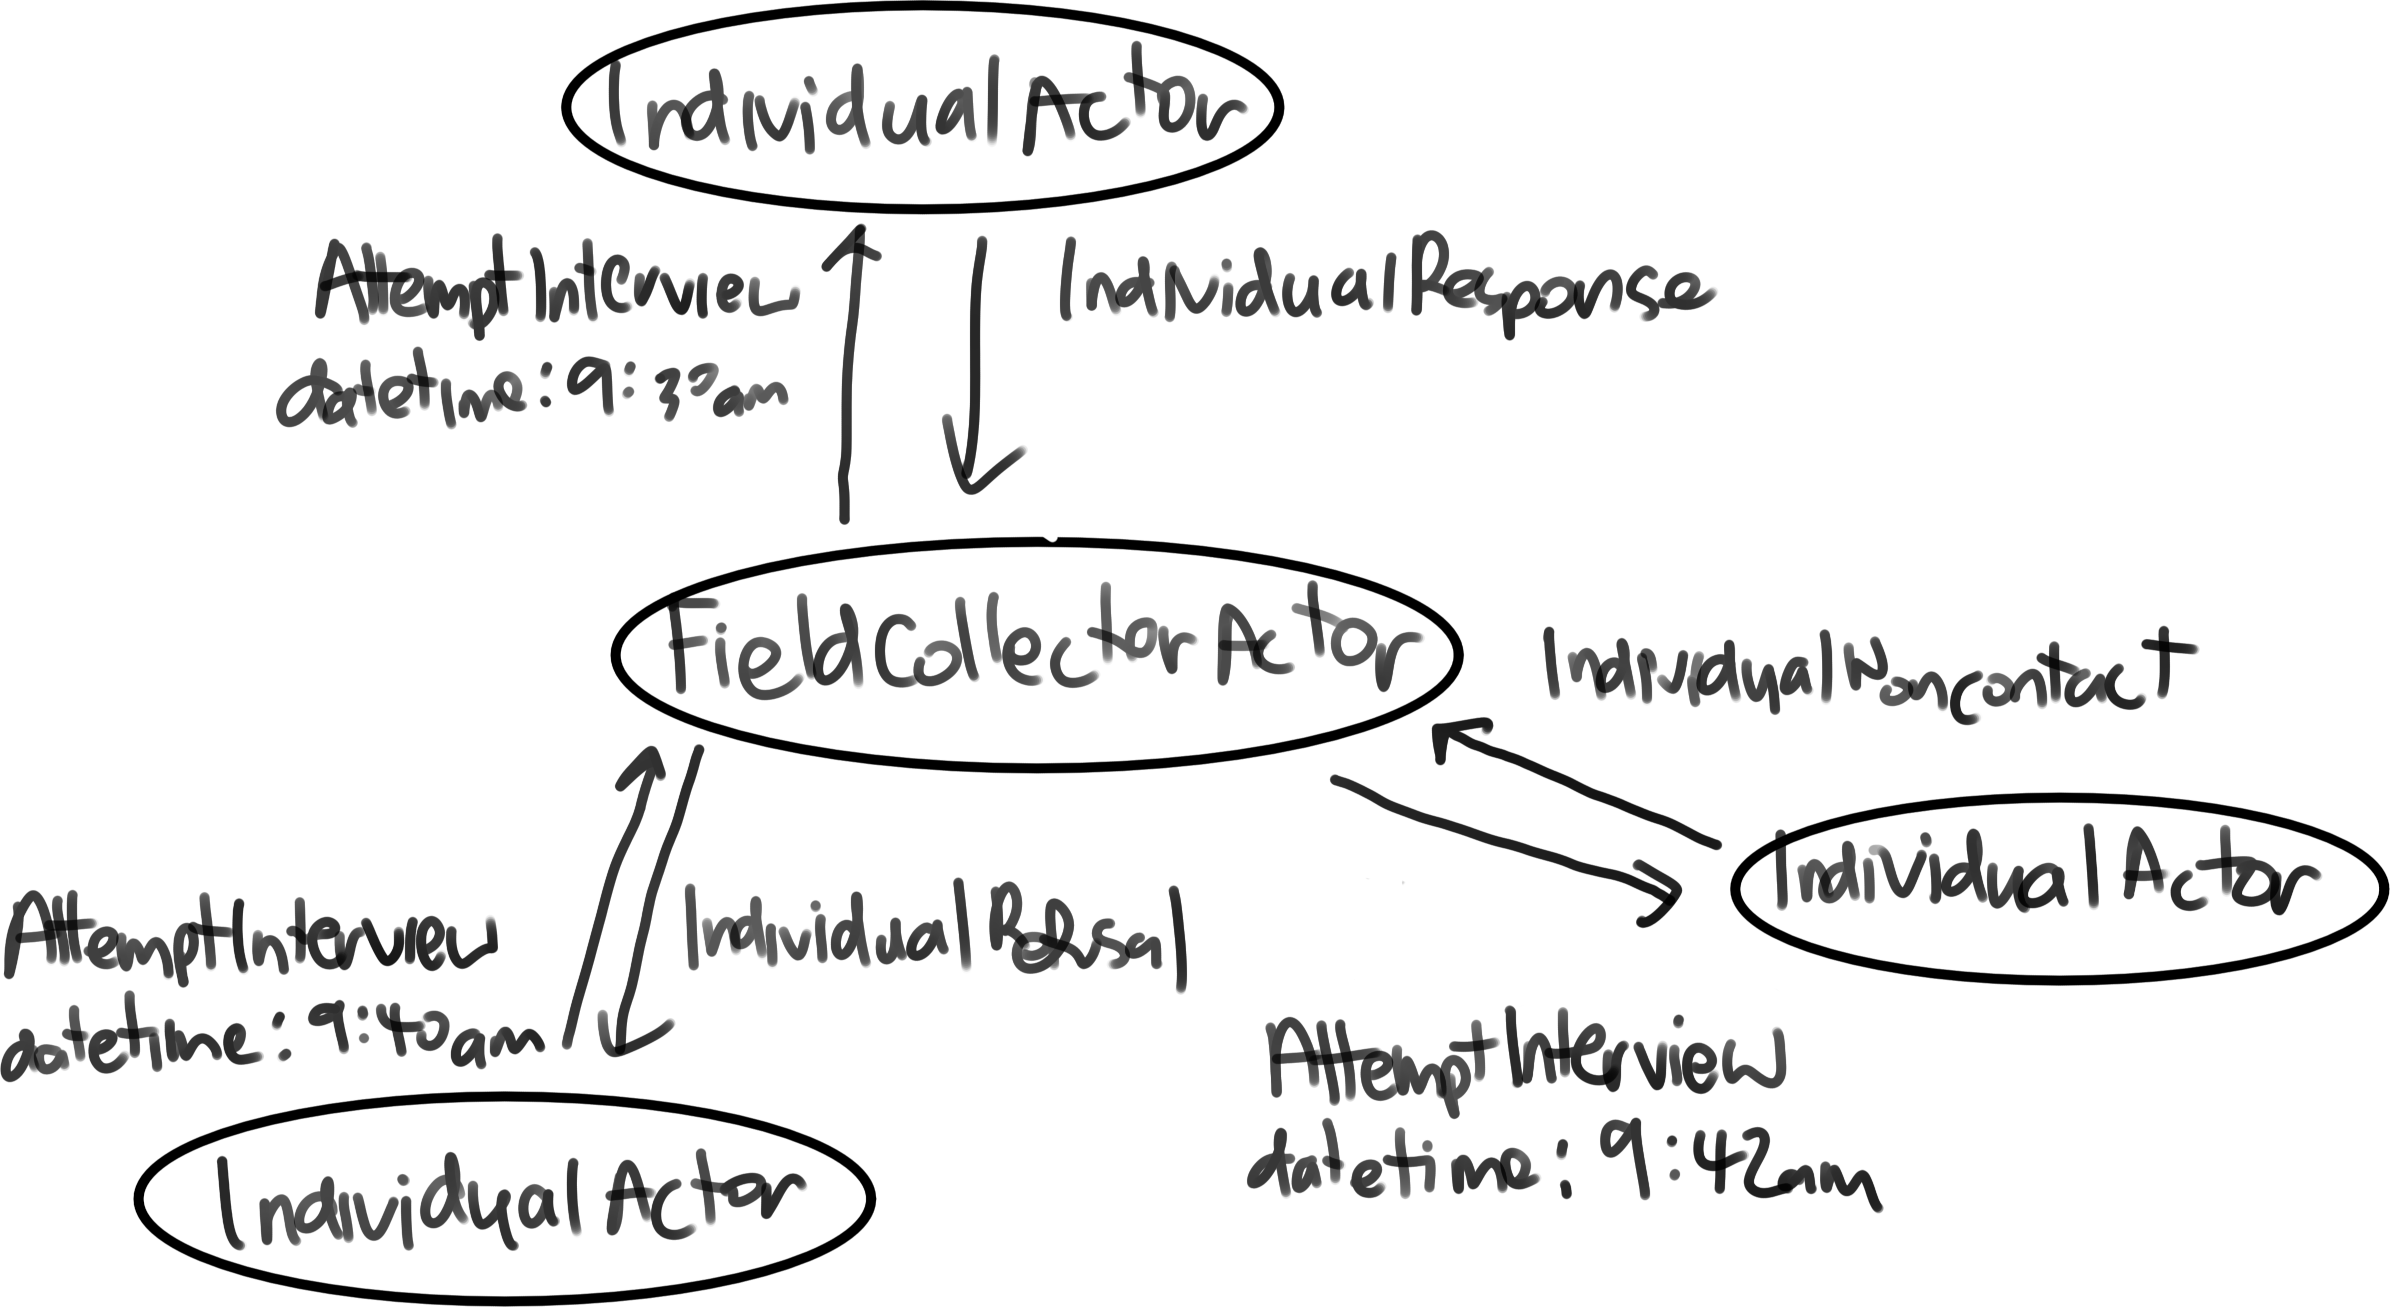 IndividualActor
AttemptInterview
IndividualResponse
datetime: 9:33am
FieldCollectorActor
IndividualNoncontact
IndividualActor
AttemptInterview
datetime: 9:40am
IndividualRefusal
AttemptInterview
datetime: 9:42am
IndividualActor